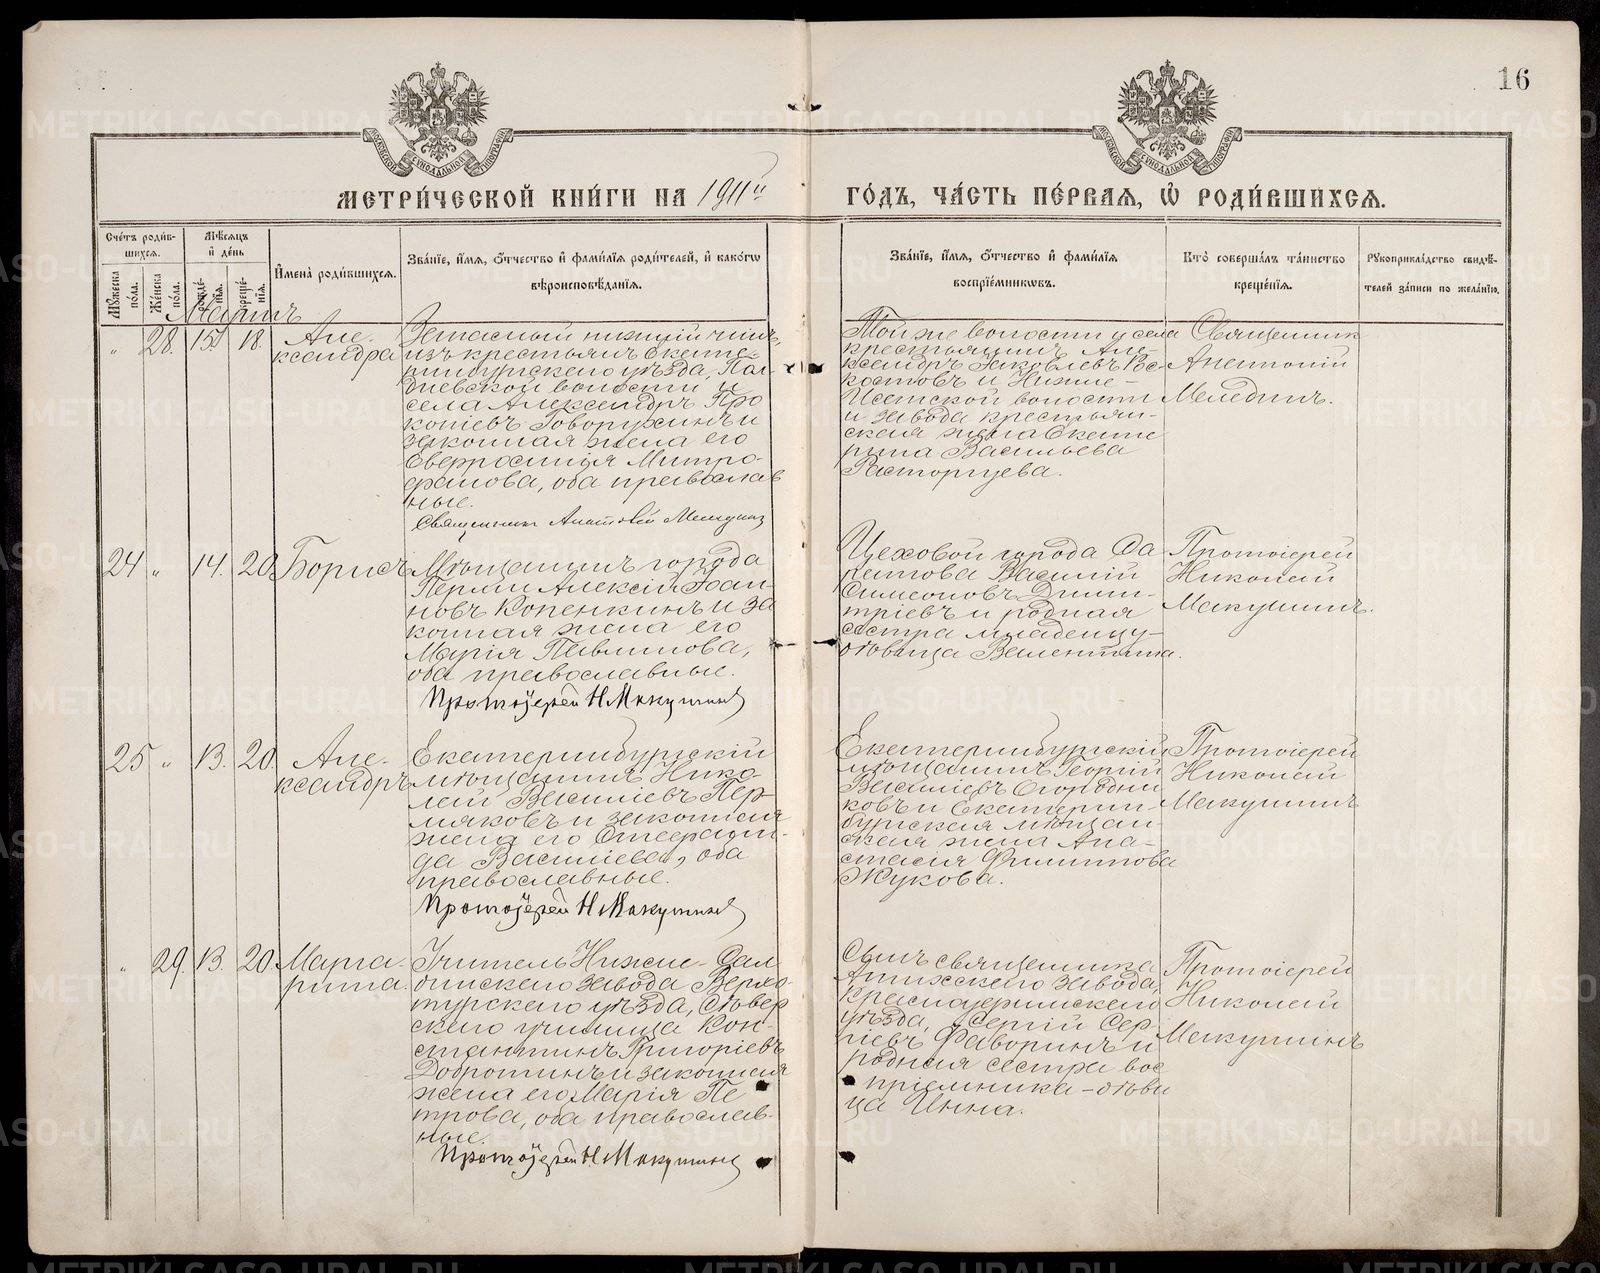 16
МЕТРИ́ЧЕСКОЙ КНИ́ГИ НА 1911й ГО́ДЪ, ЧА́СТЬ ПЕ́РВАЯ, Ѽ РОДИ́ВШИХСЯ.
Сче́тъ роди́в-
шихся.
Мꙋ́жеска по́ла.
Же́нска по́ла.
Мѣ́сяцъ
и҆ де́нь
рожде́-
нїѧ.
креще́-
нїѧ.
И҆мена̀ роди́вшихся.
Зва́нїе, и҆́мѧ, ѻ҆́тчество и҆ фами́лїѧ роди́телей, и҆ како́гѡ
вѣроисповѣ́данїѧ.
Зва́нїе, и҆́мѧ, ѻ҆́тчество и҆ фами́лїѧ
воспрїе́мникѡвъ.
Кто̀ соверша́лъ та́инство
креще́нїѧ.
Рꙋкоприкла́дство свидѣ́-
телей за́писи по жела́нїю.
Мартъ
„ 28. 15. 18.
Але-
ксандра
Запасный нижній чинъ,
изъ крестьянъ Екате-
ринбургскаго уѣзда, Пол-
дневской волости и
села Александръ Про
копіевъ Говорухинъ и
законная жена его
Еверросинія Митро-
фанова, оба православ
ные.
Священникъ Анатолій Мелединъ
Той же волости и села
крестьянинъ Але-
ксандръ Іаковлевъ Кос-
костовъ и Нижне-
Исетской волости
и завода крестьян-
ская жена Екате
рина Васильева
Расторгуева.
Священник
Анатолій
Мелединъ.
24 „ 14. 20.
Борисъ
Мѣщанинъ города
Перми Алексій Іоан-
новъ Копенкинъ и за
конная жена его
Марія Павлинова,
оба православные.
Протоіерей Н Макушинъ
Цеховой города Са
ратова Василій
Симеоновъ Дими-
тріевъ и родная
сестра младенцу-
дѣвица Валентина.
Протоіерей
Николай
Макушинъ.
25 „ 13. 20.
Але-
ксандръ
Екатеринбургскій
мѣщанинъ Нико-
лай Василіевъ Пер-
мяковъ и законная
жена его
да Василіева, оба
православные.
Протоіерей Н Макушинъ
Екатеринбургскій
мѣщанинъ Георгій
Василіевъ Огородни
ковъ и Екатерин-
бургская мѣщан-
ская жена Ана-
стасія Филиппова
Жукова.
Протоіерей
Николай
Макушинъ
„ 29. 13. 20.
Марга-
рита
Учитель Нижне-Сал
динскаго завода Верхо-
турскаго уѣзда, Сѣвер
скаго училища Кон-
стантинъ Григоріевъ
Добротинъ и законная
жена его Марія Пе
трова, оба православ-
ные.
Протоіерей Н. Макушинъ
Сынъ священника
Атигскаго завода,
Красноуфимскаго
уѣзда, Сергій Сер-
гіевъ Фаворинъ и
родная сестра вос
пріемника-дѣви
ца Инна.
Протоіерей
Николай
Макушинъ
METRIKI.GASO-URAL.RU